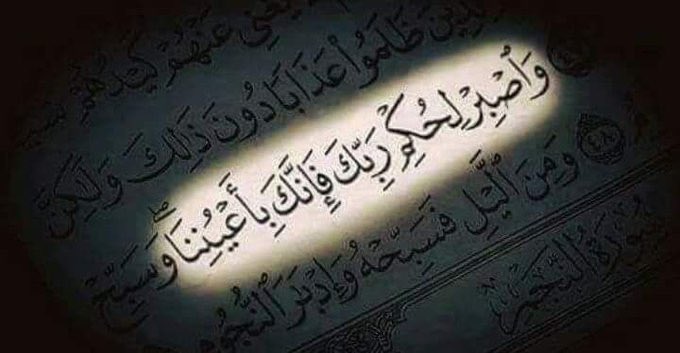 يُغْنِى عَنْهُمْ كَيْدُهُمْ
ظَلَمُوا۟ عَذَابًا دُونَ ذَٰلِكَ وَلَٰكِنَّ
وَٱصْبِرْ لِحُكْمِ رَبِّكَ فَإِنَّكَ بِأَعْيُنِنَا ۖ وَسَبِّحْ
٤٨ وَمِنَ ٱلَّيْلِ فَسَبِّحْهُ وَإِدْبَٰرَ ٱلنُّجُومِ
سُورَةُ النَّجْمِ